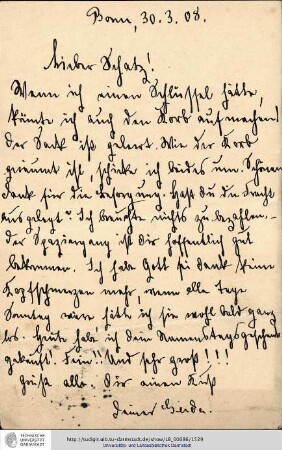 Bonn, 30.3.08.
Lieber Schatz!
Wenn ich einen Schlüssel hätte,
könnte ich auch den Korb aufmachen!
Der Sack ist geleert. Wie der Korb
geräumt ist, schicke ich beides um. Schönen
Dank für die Besorgung. Hast du die Fracht
ausgelegt? Ich brauchte nichts zu bezahlen. -
Der Spaziergang ist dir hoffentlich gut
bekommen. Ich habe Gott sei dank keine
Kopfschmerzen mehr, wenn alle Tage
Sonntag wäre hätt ich sie wohl bald ganz
los. Heute hab ich dem Namenstagsgeschenk
gekauft. Fein!! Und sehr groß!!!
Grüße alle. Dir einen Kuß
Deiner Gerda.
TECHNISCHE
UNIVERSITÄT
DARMSTADT
http://tudigit.ulb.tu-darmstadt.de/show/LB_00696/1529
Universitäts- und Landesbibliothek Darmstadt